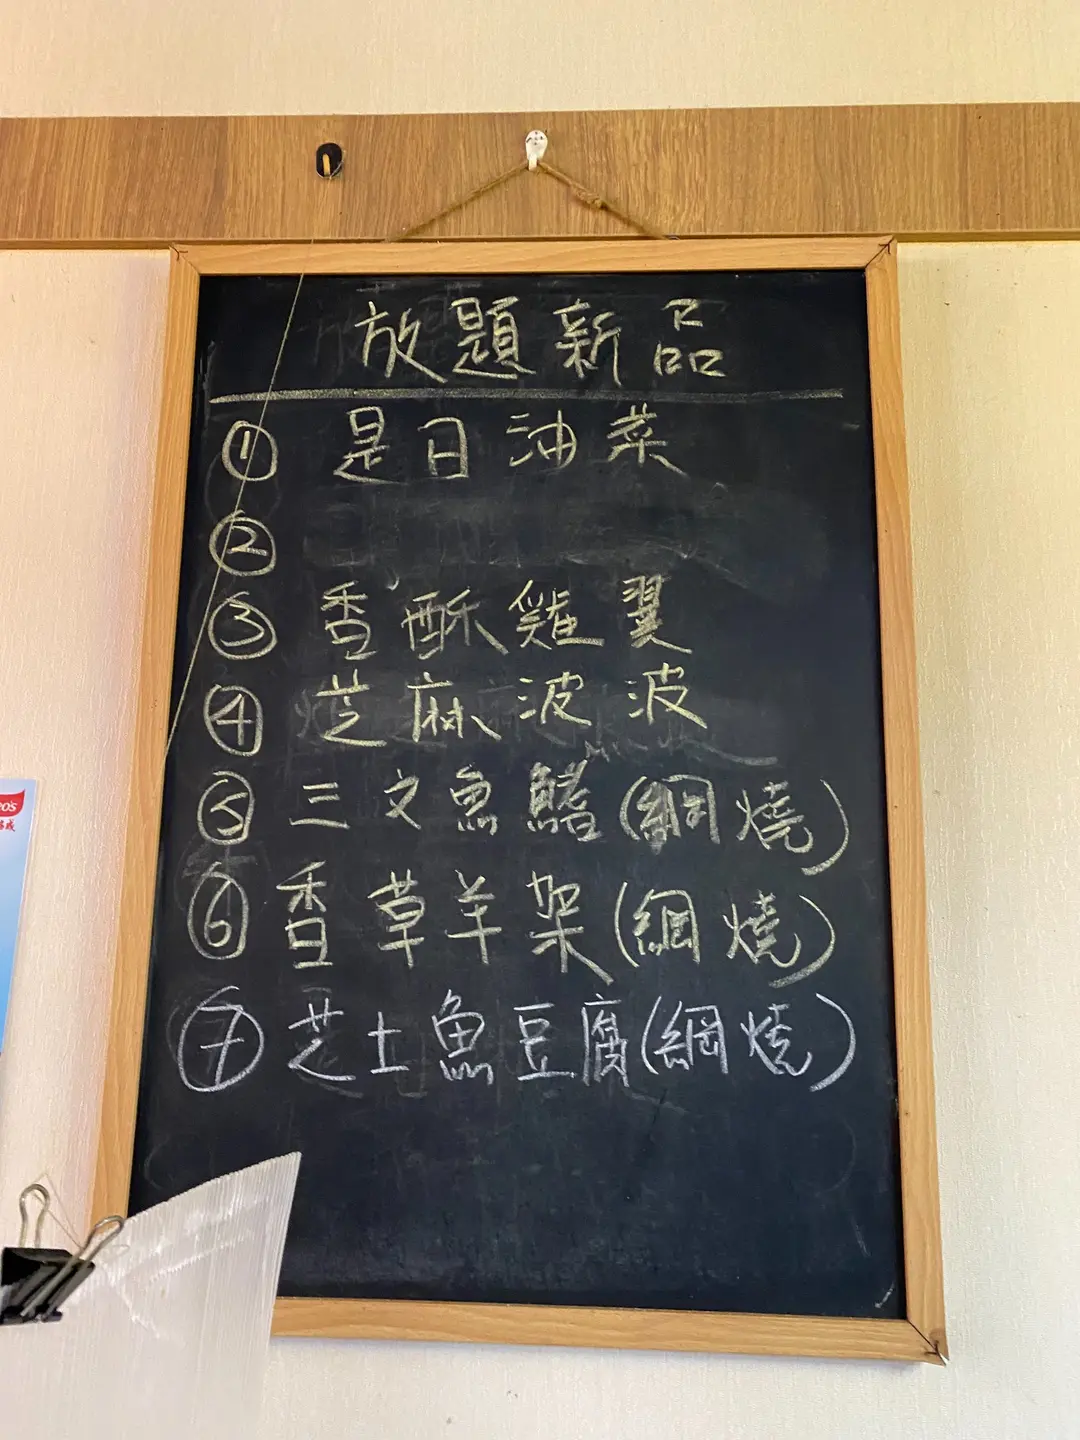 放題新品
① 是日油菜
②
③ 香酥雞翼
④ 芝麻波波
⑤ 三文魚鰭(網燒)
⑥ 香草羊架(網燒)
⑦ 芝士魚豆腐(網燒)